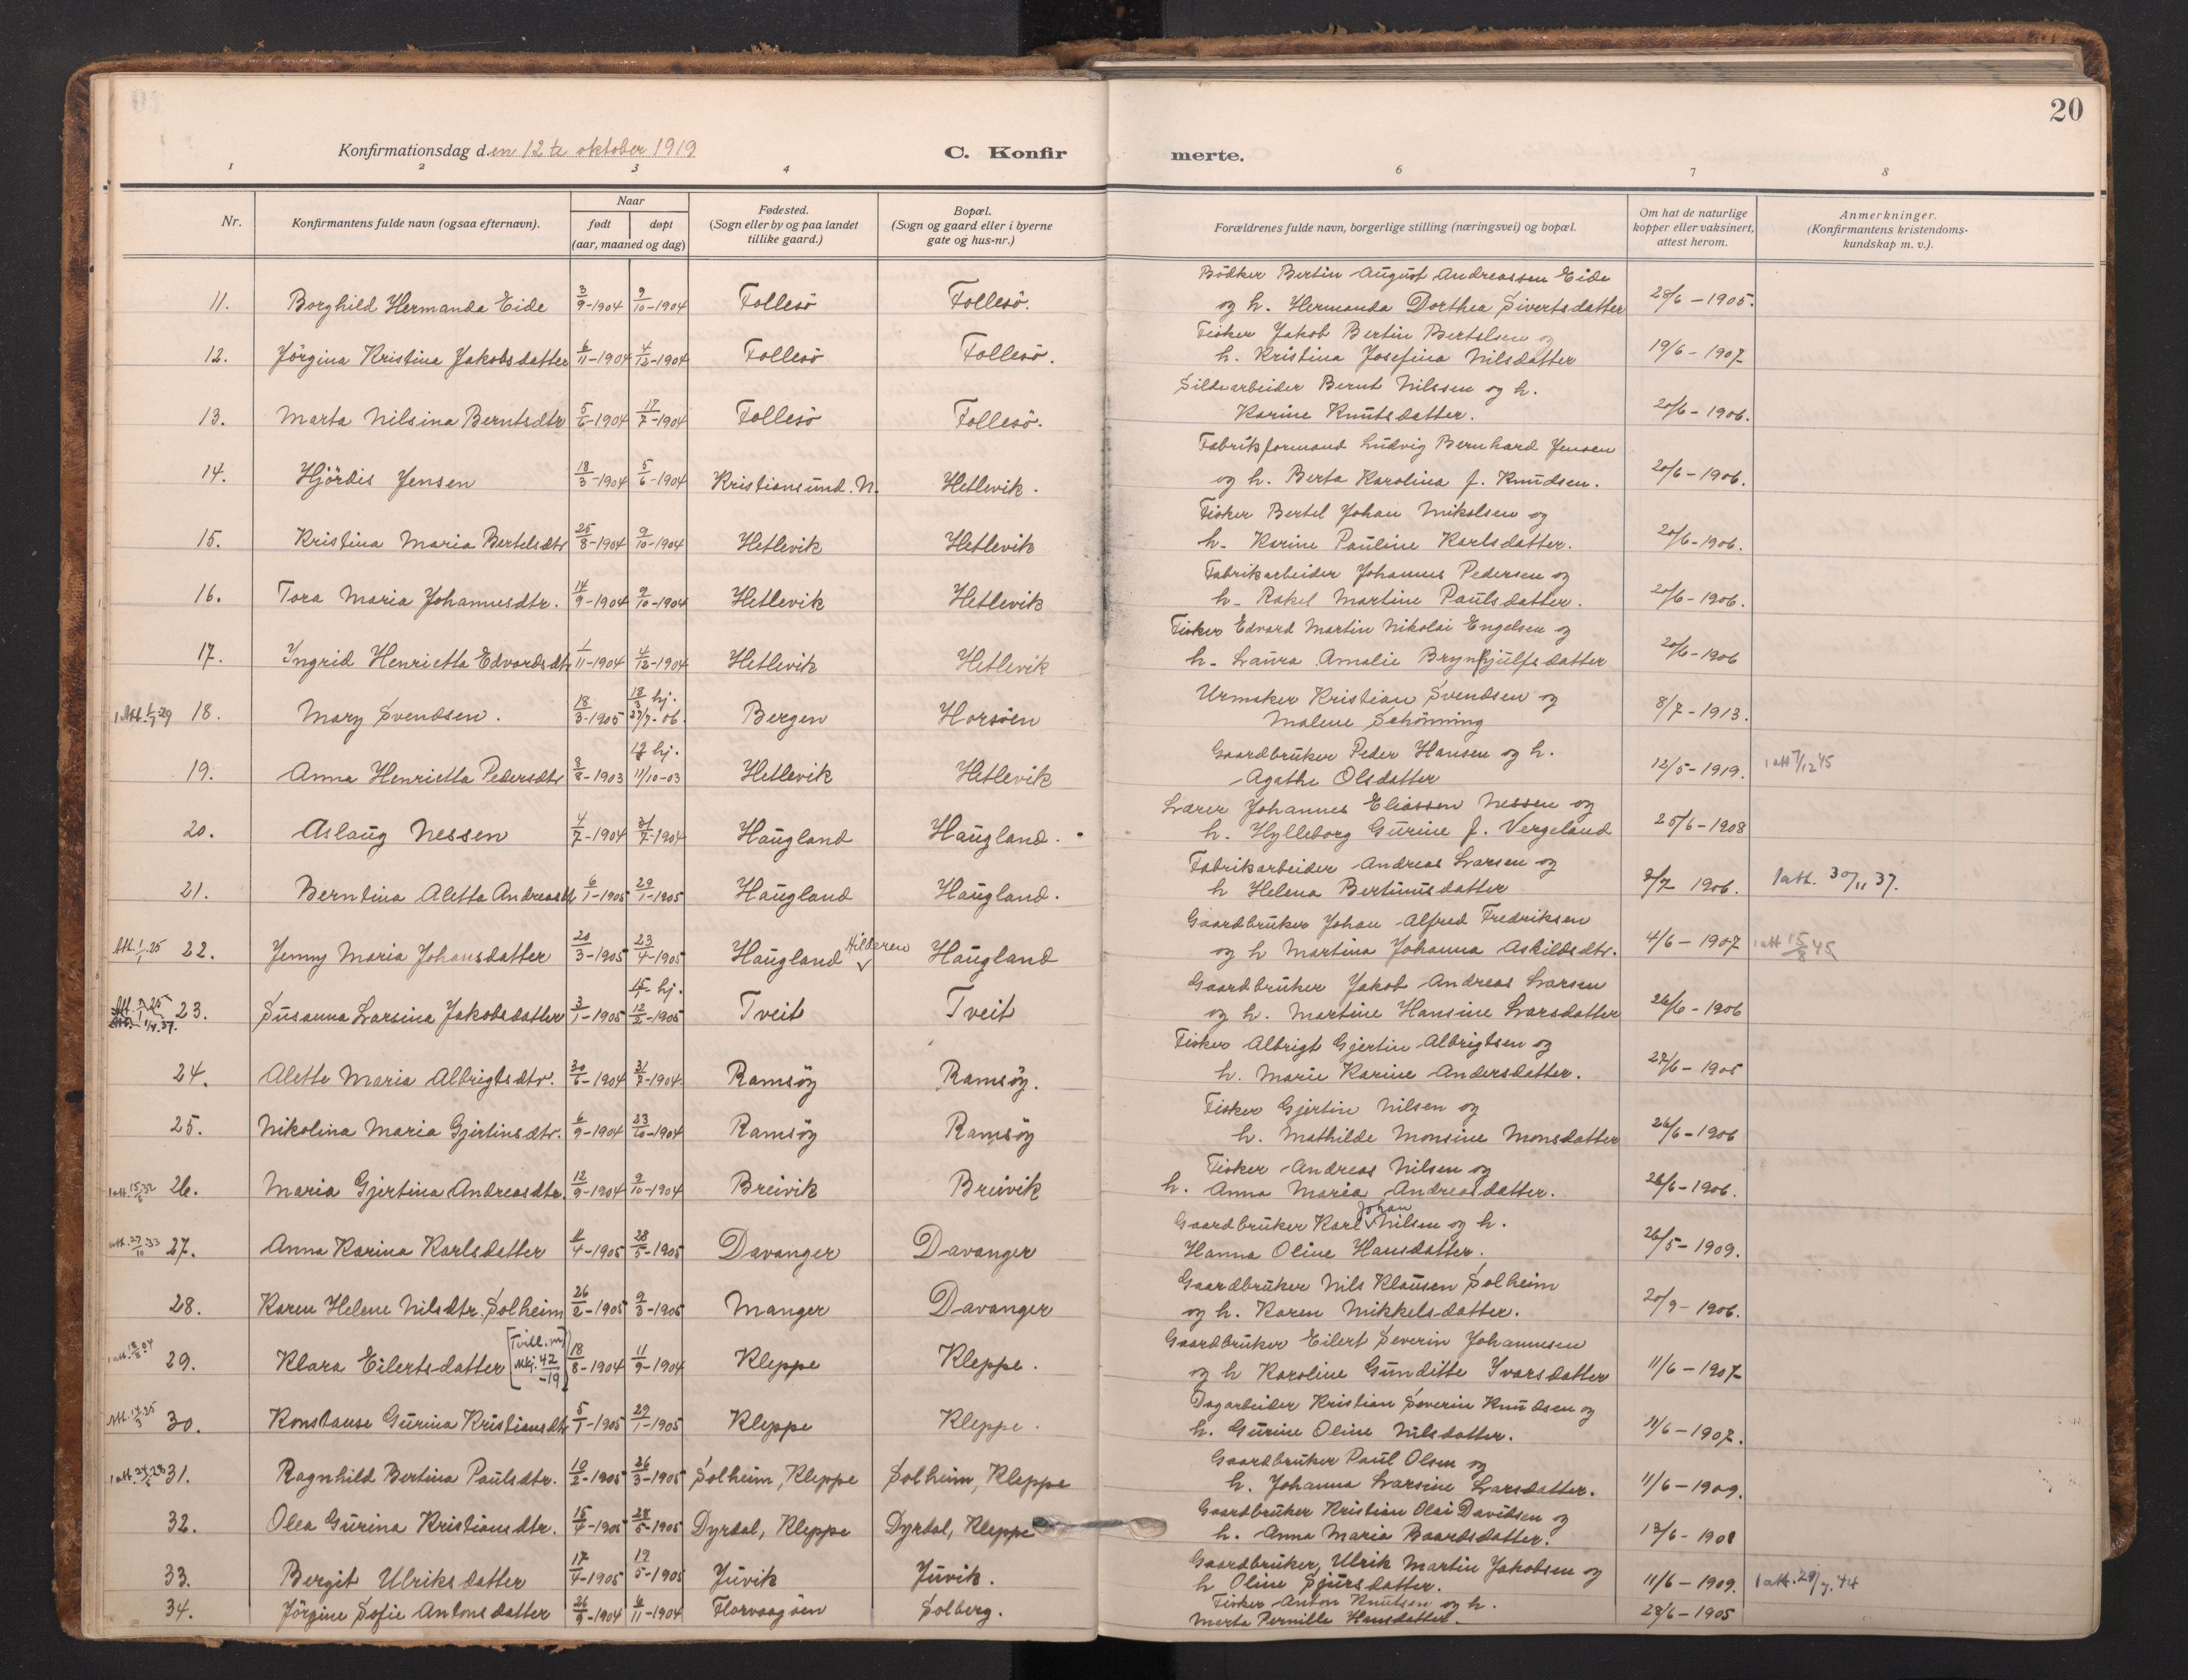 20
Konfirmationsdag den 12te oktober 1919
C. Konfir merte.
1 2 3 4 6 7 8
Nr.
Konfirmantens fulde navn (ogsaa efternavn).
Naar
født døpt
(aar, maaned og dag)
Fødested.
(Sogn eller by og paa landet
tillike gaard.)
Bopæl.
(Sogn og gaard eller i byerne
gate og hus-nr.)
Forældrenes fulde navn, borgerlige stilling (næringsvei) og bopæl.
Om hat de naturlige
kopper eller vaksinert,
attest herom.
Anmerkninger.
(Konfirmantens kristendoms-
kundskap m. v.).
Bödker Bertin August Andreassen Eide
11. Borghild Hermanda Eide 3/9-1904 9/10-1904 Follesö Follesö. og h. Hermanda Dorthea Sivertsdatter 28/6-1905.
Fisker Jakob Bertin Bertelsen og
12. Jörgina Kristina Jakobsdatter 6/11-1904 4/12-1904 Follesö Follesö. h. Kristina Josefina Nilsdatter 19/6-1907
Sildearbeider Bernt Nilssen og h.
13. Marta Nilsina Berntsdtr 5/6-1904 17/7-1904 Follesö Follesö. Karine Knutsdatter. 20/6-1906.
Fabrikformand Ludvig Bernhard Jensen
14. Hjördis Jensen 18/3-1904 5/6-1904 Kristiansund. N. Hetlevik. og h. Berta Karolina f. Knudsen. 20/6-1906.
Fisker Bertel Johan Mikalsen og
15. Kristina Maria Bertelsdtr 25/8-1904 9/10-1904 Hetlevik Hetlevik h. Karine Pauline Karlsdatter. 20/6-1906.
Fabrikarbeider Johannes Pedersen og
16. Tora Maria Johannesdtr. 14/9-1904 9/10-1904 Hetlevik Hetlevik h. Rakel Martine Paulsdatter. 20/6-1906.
Fisker Edvard Martin Nikolai Engelsen og
17. Ingrid Henrietta Edvardsdtr 1/11-1904 4/12-1904 Hetlevik Hetlevik h. Laura Amalie Brynhjulfsdatter 20/6-1906
18/3 hj. Urmaker Kristian Svendsen og
18. Mary Svendsen. 18/3-1905 27/7-06. Bergen Horsöen Malene Schönning 8/7-1913.
hj. Gaardbruker Peder Hansen og h.
19. Anna Henrietta Pedersdtr 8/8-1903 11/10-03 Hetlevik Hetlevik Agathe Olsdatter 12/5-1919. 1 att 7/12 45
Lærer Johannes Eliassen Nessen og
20. Aslaug Nessen 4/7-1904 31/7-1904 Haugland Haugland. h. Hylleborg Gurine f. Vergeland 25/6-1908
Fabrikarbeider Andreas Larsen og
21. Berntina Aletta Andreasdtr 6/1-1905 29/1-1905 Haugland Haugland. h Helena Bertinusdatter 2/7 1906. 1 att. 30/11 37.
Gaardbruker Johan Alfred Fredriksen
Att. 1/1 25 22. Jenny Maria Johansdatter 20/3-1905 23/4-1905 Haugland Hilderen Haugland og h Martina Johanna Askildsdtr. 4/6-1907 1 att 15/8 45
hj. Gaardbruker Jakob Andreas Larsen
23. Susanna Larsina Jakobsdatter 3/1-1905 12/2-1905 Tveit Tveit og h. Martine Hansine Larsdatter 26/6-1906
Fisker Albrigt Gjertin Albrigtsen og
24. Alette Maria Albrigtsdtr. 30/6-1904 31/7-1904. Ramsöy Ramsöy. h. Marie Karine Andersdatter. 27/6-1905
Fisker Gjertin Nilsen og
25. Nikolina Maria Gjertinsdtr. 6/9-1904 23/10-1904 Ramsöy Ramsöy h. Mathilde Monsine Monsdatter 26/6-1906
Fisker Andreas Nilsen og
1 att. 15/6 32 26. Maria Gjertina Andreasdtr. 12/9-1904 9/10-1904 Breivik Breivik h. Anna Maria Andreasdatter. 26/6-1906.
Gaardbruker Karl Johan Nilsen og h.
att. 27/10 33 27. Anna Karina Karlsdatter 2/4-1905 28/5-1905 Davanger Davanger Hanna Oline Hansdatter. 26/5-1909.
Gaardbruker Nils Klausen Solheim
28. Karen Helene Nilsdtr. Solheim 26/2-1905 9/3-1905 Manger Davanger og h. Karen Mikkelsdatter. 20/9-1906.
Gaardbruker Eilert Severin Johannesen
29. Klara Eilertsdatter [Tvill. m. Mkj. 42-19] 18/8-1904 11/9-1904 Kleppe Kleppe. og h Karoline Gunditte Ivarsdatter 11/6-1907
Dagarbeider Kristian Severin Knudsen og
Att. 14/3 25 30. Konstanse Gurina Kristiansdtr 5/1-1905 29/1-1905 Kleppe Kleppe. h. Gurine Oline Nilsdatter. 11/6-1907.
Gaardbruker Paul Olsen og
31. Ragnhild Bertina Paulsdtr. 10/2-1905 26/3-1905 Solheim, Kleppe Solheim, Kleppe h. Johanna Larsine Larsdatter. 11/6-1909.
Gaardbruker Kristian Olai Davidsen og
32. Olea Gurina Kristiansdtr. 15/4-1905 28/5-1905 Dyrdal, Kleppe Dyrdal, Kleppe h. Anna Maria Baardsdatter. 13/6-1908
Gaardbruker, Ulrik Martin Jakobsen og
33. Bergit Ulriksdatter 17/4-1905 19/5-1905 Juvik Juvik. h Oline Sjursdatter. 11/6-1909. 1 att. 29/7. 44
Fisker Anton Knutsen og h.
34. Jörgine Sofie Antonsdatter 26/9-1904 6/11-1904 Florvaagöen Solberg. Marta Pernille Hansdatter. 28/6-1905